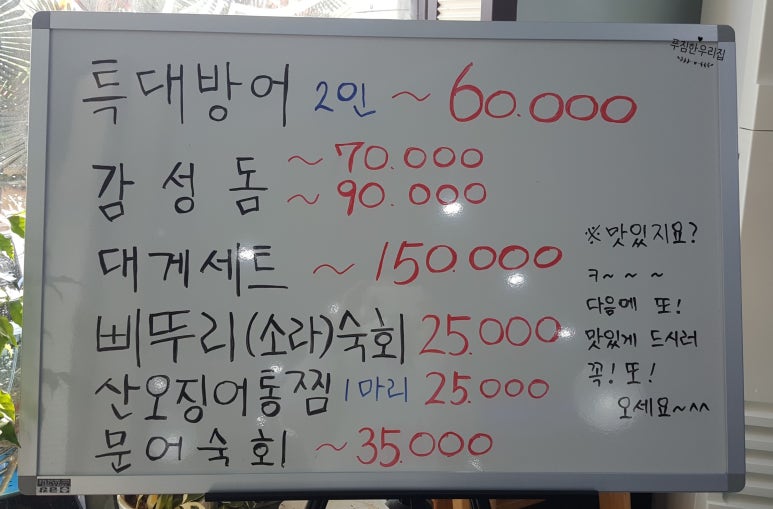 푸짐한우리집
특대방어 2인 ~ 60.000
감성돔 ~ 70.000
~ 90.000
대게세트 ~ 150.000
삐뚜리(소라)숙회 25.000
산오징어통찜 1마리 25.000
문어숙회 ~ 35.000
※맛있지요?
ㅋ~ ~ ~
다음에 또!
맛있게 드시러
꼭! 또!
오세요~^^